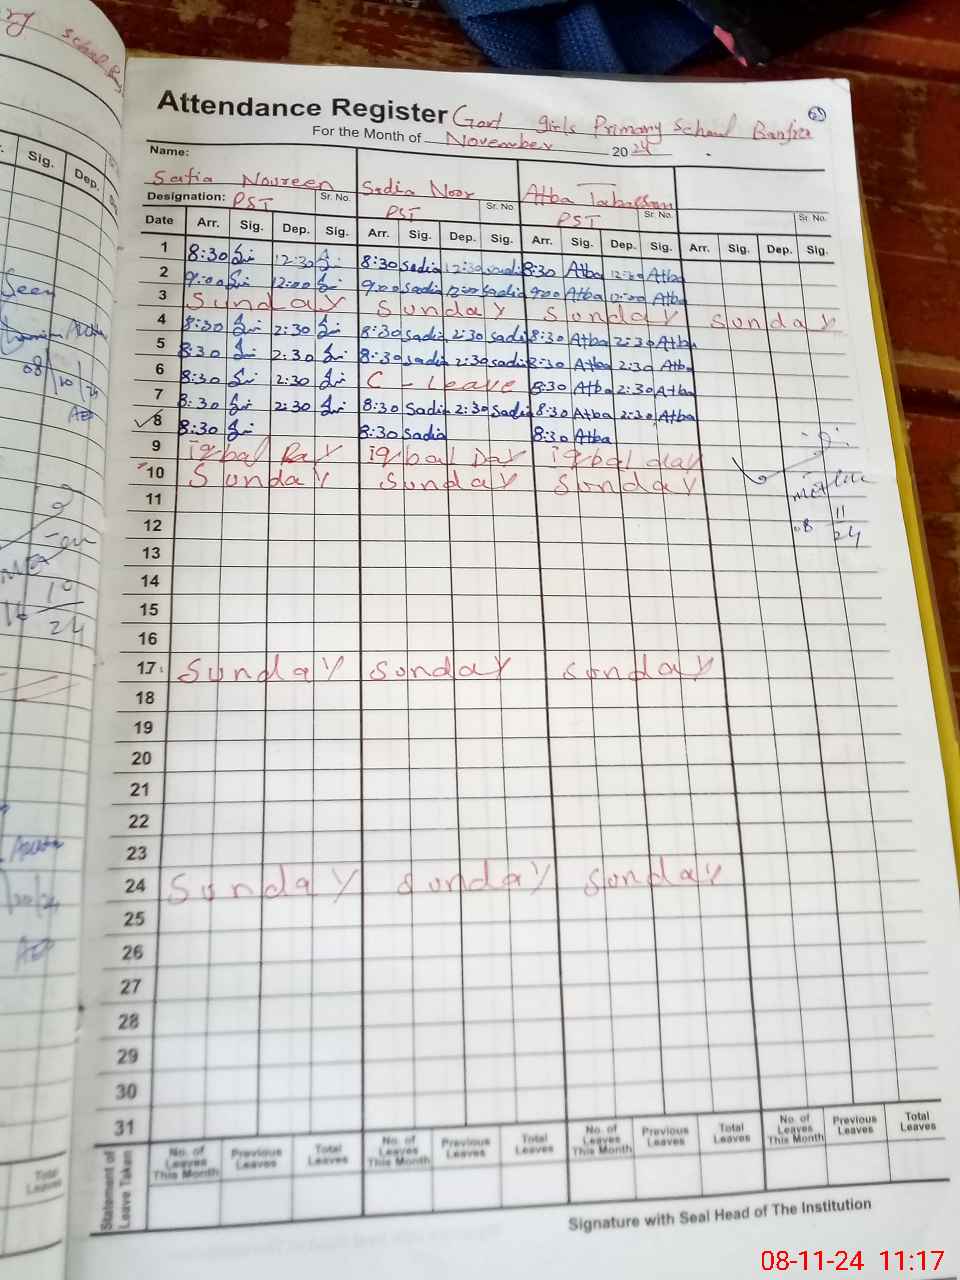 Attendance Register Govt girls Primary School
For the Month of November 2024
Name:
Safia Noureen Sadia Noor Atba Tabassam
Designation: PST Sr. No. PST Sr. No. PST Sr. No. Sr. No.
Date Arr. Sig. Dep. Sig. Arr. Sig. Dep. Sig. Arr. Sig. Dep. Sig. Arr. Sig. Dep. Sig.
1 8:30 12:30 8:30 Sadia 12:30 Sadia 8:30 Atba 12:30 Atba
2 9:00 12:00 9:00 Sadia 12:00 Sadia 9:00 Atba 12:00 Atba
3 Sunday Sunday Sunday Sunday
4 8:30 2:30 8:30 Sadia 2:30 Sadia 8:30 Atba 2:30 Atba
5 8:30 2:30 8:30 Sadia 2:30 Sadia 8:30 Atba 2:30 Atba
6 8:30 2:30 C - Leave 8:30 Atba 2:30 Atba
7 8:30 2:30 8:30 Sadia 2:30 Sadia 8:30 Atba 2:30 Atba
8 8:30 8:30 Sadia 8:30 Atba
9 iqbal Day iqbal Day iqbal day
10 Sunday Sunday Sunday
11
12
08 11 24
13
14
15
16
17 Sunday Sunday Sunday
18
19
20
21
22
23
24 Sunday Sunday Sunday
25
26
27
28
29
30
31
Statement of Leave Taken
No. of Leaves This Month Previous Leaves Total Leaves No. of Leaves This Month Previous Leaves Total Leaves No. of Leaves This Month Previous Leaves Total Leaves No. of Leaves This Month Previous Leaves Total Leaves
Signature with Seal Head of The Institution
Sig. Dep.
Seen
08/10/24
10
24
Total Leaves
08-11-24 11:17